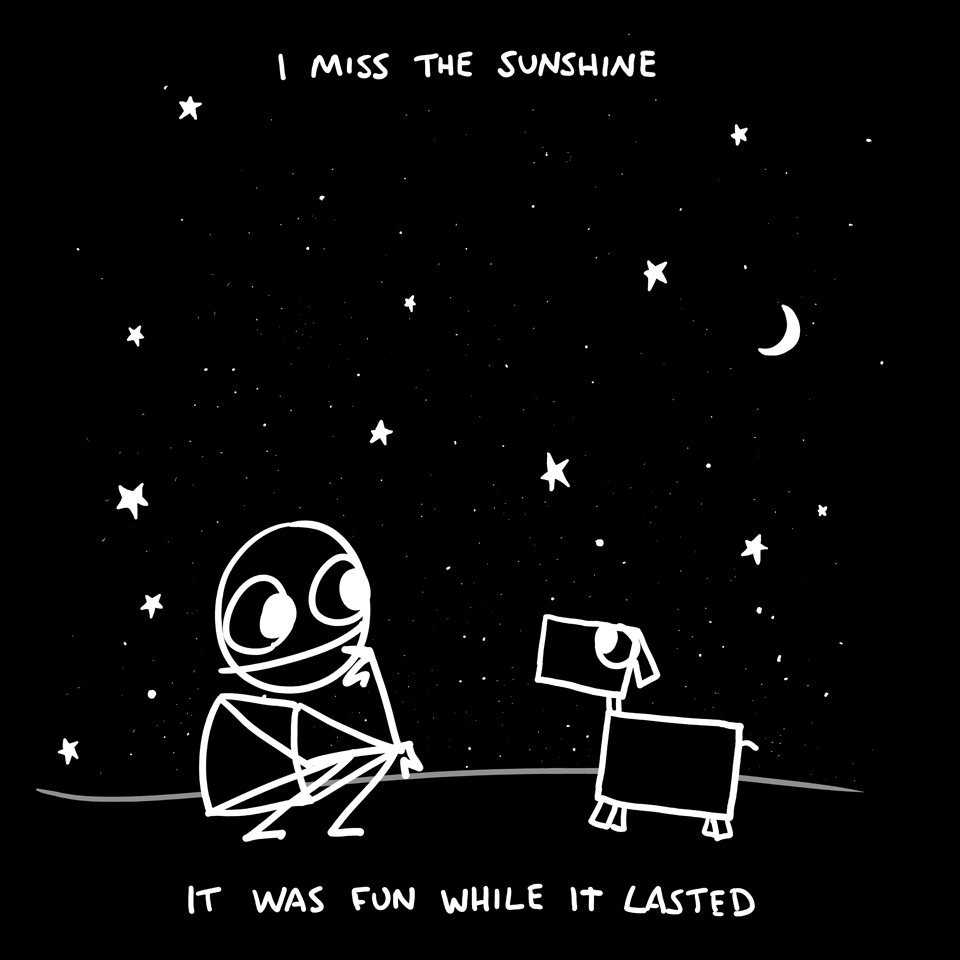 I MISS THE SUNSHINE
IT WAS FUN WHILE IT LASTED